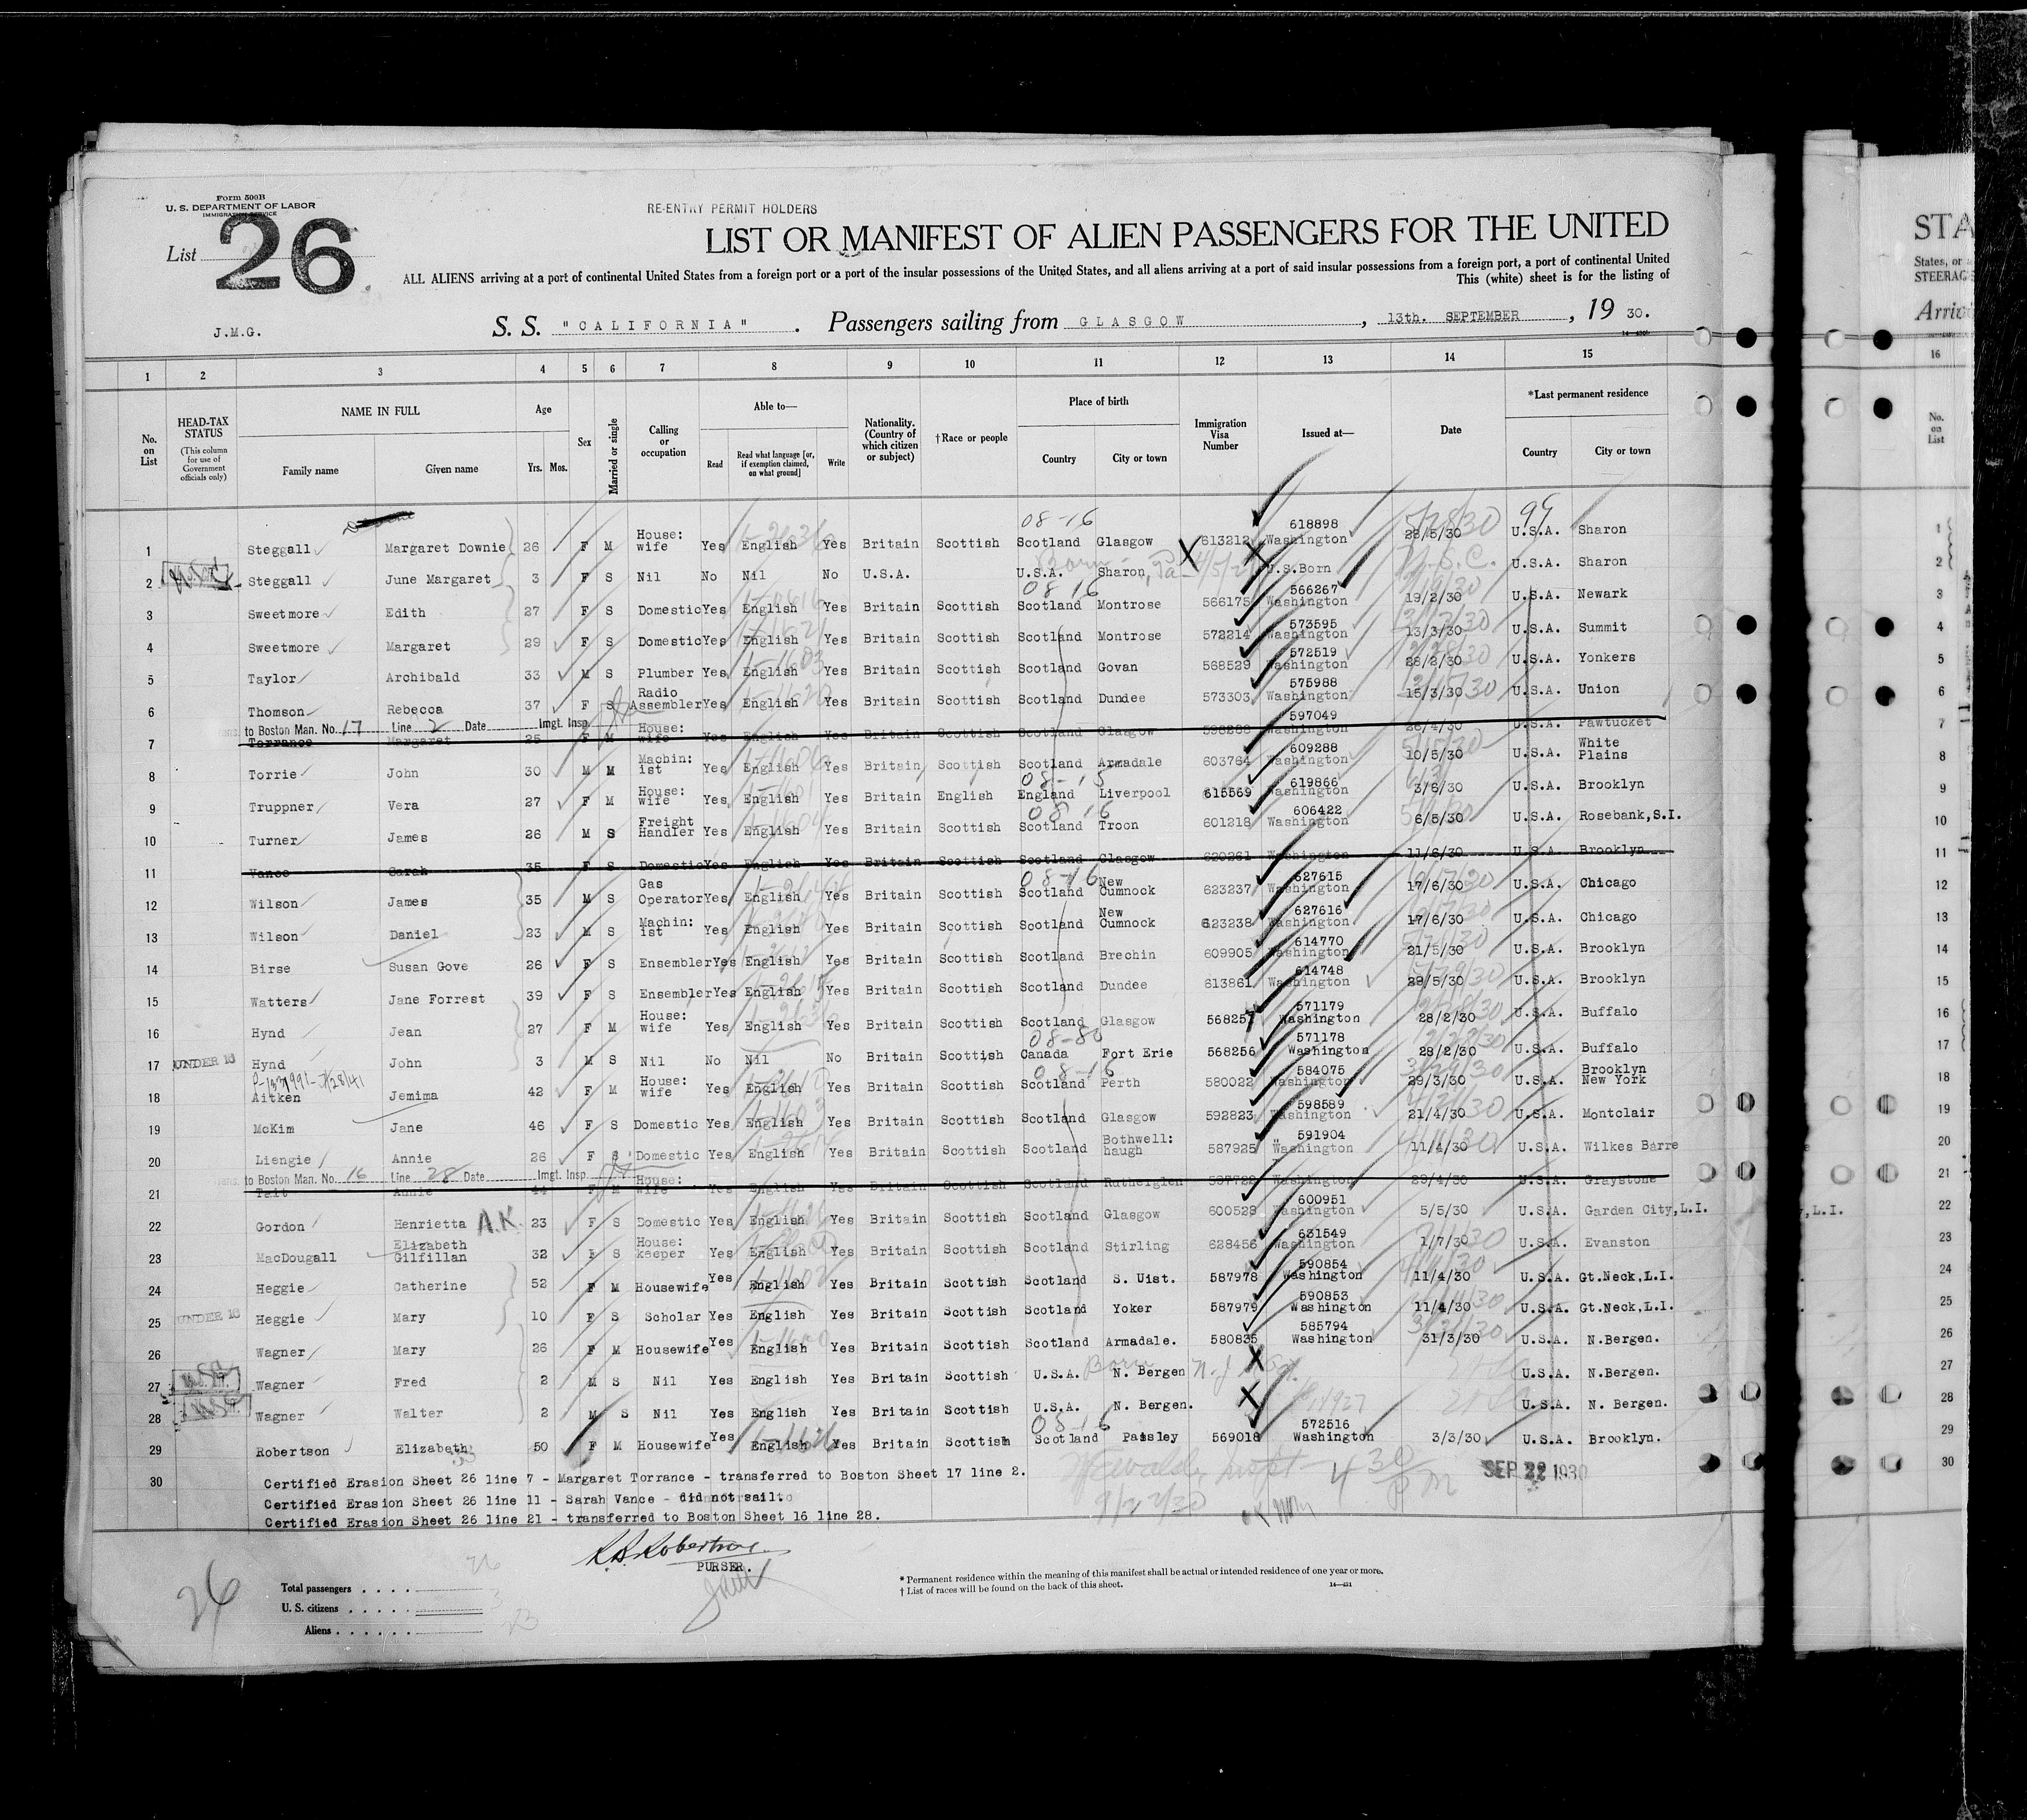 Form 500B
U. S. DEPARTMENT OF LABOR
IMMIGRATION SERVICE
List 26
RE-ENTRY PERMIT HOLDERS
LIST OR MANIFEST OF ALIEN PASSENGERS FOR THE UNITED
ALL ALIENS arriving at a port of continental United States from a foreign port or a port of the insular possessions of the United States, and all aliens arriving at a port of said insular possessions from a foreign port, a port of continental United
This (white) sheet is for the listing of
J.M.G.
S. S. "CALIFORNIA". Passengers sailing from GLASGOW, 13th. SEPTEMBER, 19 30.
1 2 3 4 5 6 7 8 9 10 11 12 13 14 15
No. on List
HEAD-TAX STATUS (This column for use of Government officials only)
NAME IN FULL Family name Given name
Age Yrs. Mos.
Sex
Married or single
Calling or occupation
Able to— Read Read what language [or, if exemption claimed, on what ground] Write
Nationality. (Country of which citizen or subject)
†Race or people
Place of birth Country City or town
Immigration Visa Number
Issued at—
Date
*Last permanent residence Country City or town
08-16 618898
1 Steggall Margaret Downie 26 F M House: wife Yes English Yes Britain Scottish Scotland Glasgow 613212 Washington 28/5/30 U.S.A. Sharon
2 Steggall June Margaret 3 F S Nil No Nil No U.S.A. U.S.A. Sharon, Pa U.S.Born U.S.A. Sharon
08-16 566267
3 Sweetmore Edith 27 F S Domestic Yes English Yes Britain Scottish Scotland Montrose 566175 Washington 19/2/30 U.S.A. Newark
573595
4 Sweetmore Margaret 29 F S Domestic Yes English Yes Britain Scottish Scotland Montrose 572214 Washington 13/3/30 U.S.A. Summit
572519
5 Taylor Archibald 33 M S Plumber Yes English Yes Britain Scottish Scotland Govan 568529 Washington 28/2/30 U.S.A. Yonkers
575988
6 Thomson Rebecca 37 F S Radio Assembler Yes English Yes Britain Scottish Scotland Dundee 573303 Washington 15/3/30 U.S.A. Union
to Boston Man. No. 17 Line 2 Date Imgt. Insp.
597049
7 Torrance Margaret 25 F M House: wife Yes English Yes Britain Scottish Scotland Glasgow Washington 26/4/30 U.S.A. Pawtucket
609288
8 Torrie John 30 M M Machin: ist Yes English Yes Britain Scottish Scotland Armadale 603764 Washington 10/5/30 U.S.A. White Plains
08-15 619866
9 Truppner Vera 27 F M House: wife Yes English Yes Britain English England Liverpool 615569 Washington 3/6/30 U.S.A. Brooklyn
08-16 606422
10 Turner James 26 M S Freight Handler Yes English Yes Britain Scottish Scotland Troon 601218 Washington 6/5/30 U.S.A. Rosebank,S.I.
11 Vance Sarah 35 F S Domestic Yes English Yes Britain Scottish Scotland Glasgow 620261 Washington 11/6/30 U.S.A. Brooklyn
08-16 627615
12 Wilson James 35 M S Gas Operator Yes English Yes Britain Scottish Scotland New Cumnock 623237 Washington 17/6/30 U.S.A. Chicago
627616
13 Wilson Daniel 23 M S Machin: ist Yes English Yes Britain Scottish Scotland New Cumnock 623238 Washington 17/6/30 U.S.A. Chicago
614770
14 Birse Susan Gove 26 F S Ensembler Yes English Yes Britain Scottish Scotland Brechin 609905 Washington 21/5/30 U.S.A. Brooklyn
614748
15 Watters Jane Forrest 39 F S Ensembler Yes English Yes Britain Scottish Scotland Dundee 613861 Washington 29/5/30 U.S.A. Brooklyn
571179
16 Hynd Jean 27 F M House: wife Yes English Yes Britain Scottish Scotland Glasgow 568257 Washington 28/2/30 U.S.A. Buffalo
08-80 571178
17 UNDER 16 Hynd John 3 M S Nil No Nil No Britain Scottish Canada Fort Erie 568256 Washington 28/2/30 U.S.A. Buffalo
08-16 584075
18 Aitken Jemima 42 F M House: wife Yes English Yes Britain Scottish Scotland Perth 580022 Washington 29/3/30 U.S.A. Brooklyn New York
598589
19 McKim Jane 46 F S Domestic Yes English Yes Britain Scottish Scotland Glasgow 592823 Washington 21/4/30 U.S.A. Montclair
591904
20 Liengie Annie 26 F S Domestic Yes English Yes Britain Scottish Scotland Bothwell: haugh 587925 Washington 11/4/30 U.S.A. Wilkes Barre
to Boston Man. No. 16 Line 28 Date Imgt. Insp.
21 Tait Annie 44 F M House: wife Yes English Yes Britain Scottish Scotland Rutherglen Washington 29/4/30 U.S.A. Graystone
600951
22 Gordon Henrietta A.K. 23 F S Domestic Yes English Yes Britain Scottish Scotland Glasgow 600528 Washington 5/5/30 U.S.A. Garden City,L.I.
631549
23 MacDougall Elizabeth Gilfillan 32 F S House: keeper Yes English Yes Britain Scottish Scotland Stirling 628456 Washington 1/7/30 U.S.A. Evanston
590854
24 Heggie Catherine 52 F M Housewife Yes English Yes Britain Scottish Scotland S. Uist. 587978 Washington 11/4/30 U.S.A. Gt.Neck,L.I.
590853
25 UNDER 16 Heggie Mary 10 F S Scholar Yes English Yes Britain Scottish Scotland Yoker 587979 Washington 11/4/30 U.S.A. Gt.Neck,L.I.
585794
26 Wagner Mary 26 F M Housewife Yes English Yes Britain Scottish Scotland Armadale. 580835 Washington 31/3/30 U.S.A. N.Bergen.
27 Wagner Fred 2 M S Nil Yes English Yes Britain Scottish U.S.A. Born N. Bergen N.J. U.S.A. N.Bergen.
28 Wagner Walter 2 M S Nil Yes English Yes Britain Scottish U.S.A. N. Bergen. U.S.A. N. Bergen.
08-16 572516
29 Robertson Elizabeth 50 F M Housewife Yes English Yes Britain Scottish Scotland Paisley 569018 Washington 3/3/30 U.S.A. Brooklyn.
30 Certified Erasion Sheet 26 line 7 - Margaret Torrance - transferred to Boston Sheet 17 line 2.
Certified Erasion Sheet 26 line 11 - Sarah Vance - did not sail.
Certified Erasion Sheet 26 line 21 - transferred to Boston Sheet 16 line 28.
9/22/30 4 30 pm SEP 22 1930
PURSER.
26
Total passengers . . . . 26
U. S. citizens . . . . . 3
Aliens . . . . . . 23
* Permanent residence within the meaning of this manifest shall be actual or intended residence of one year or more.
† List of races will be found on the back of this sheet.
14—451
STA
States, or
STEERAG
Arriv
16
No. on List
1
2
3
4
5
6
7
8
9
10
11
12
13
14
15
16
17
18
19
20
21
22
23
24
25
26
27
28
29
30
,L.I.